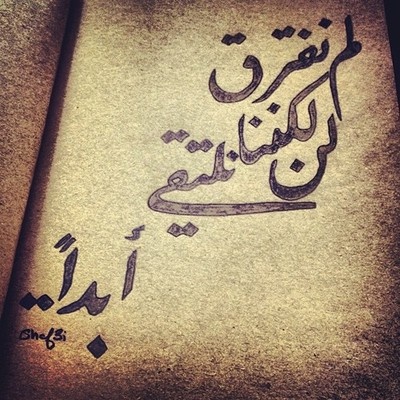 لم نفترق
لكننا
لن نلتقي
أبداً
Shaf3i